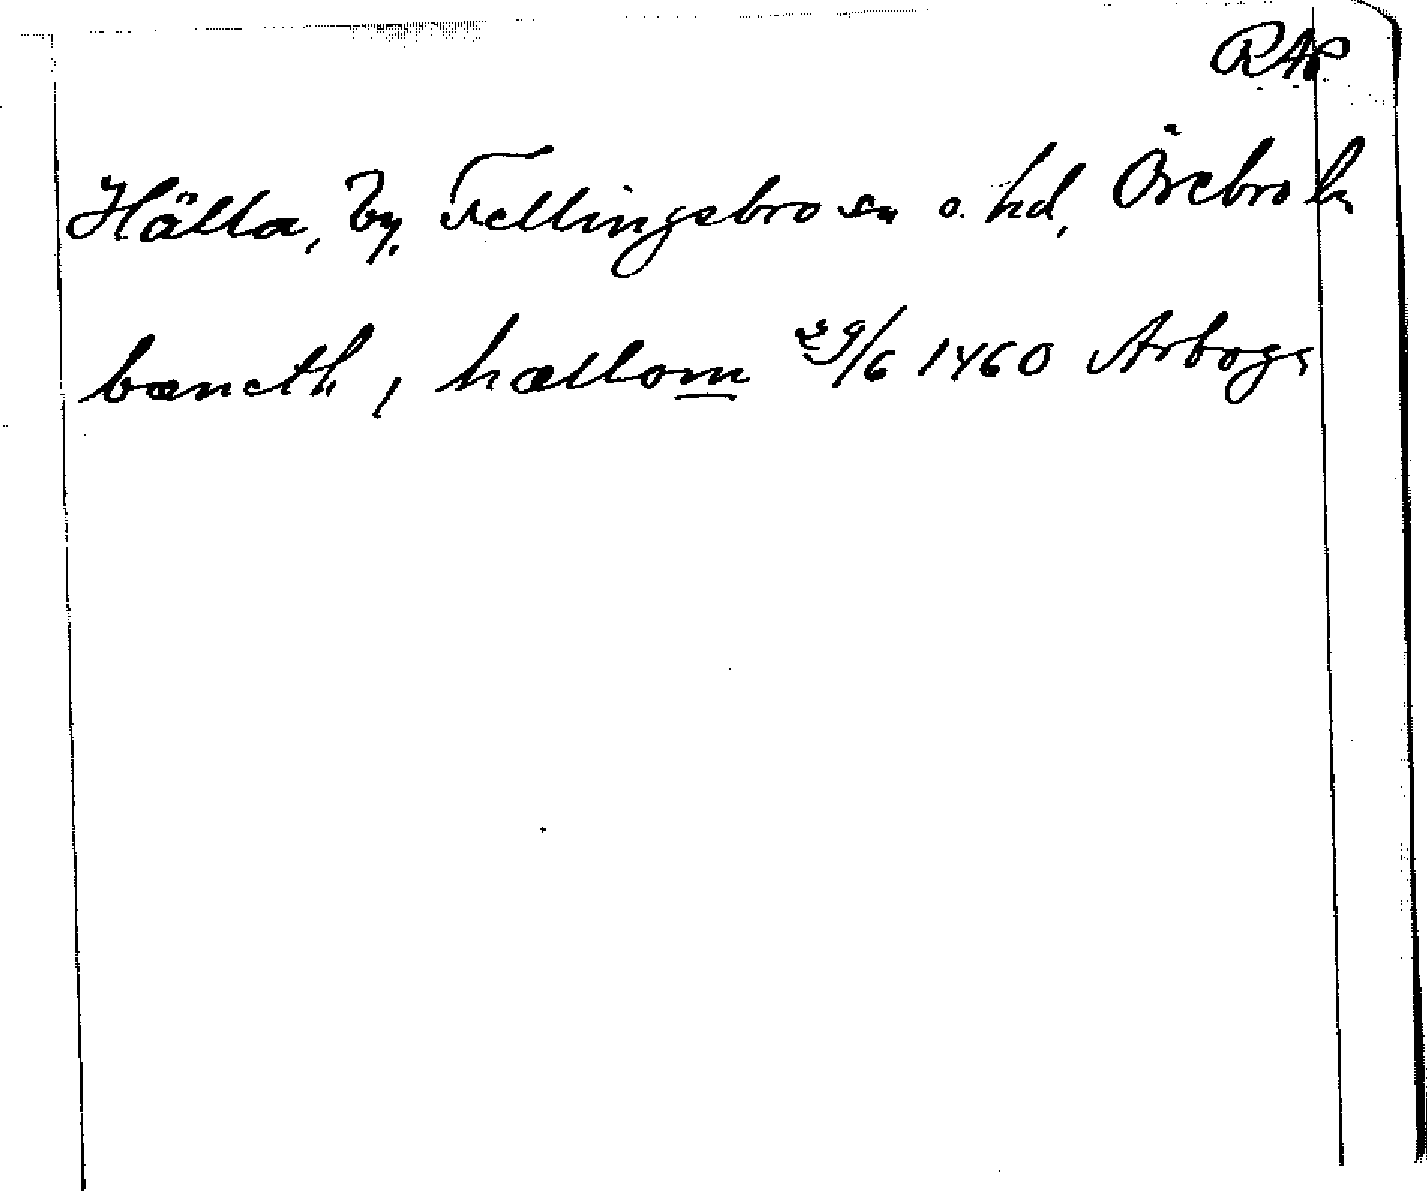 RAP
Hälla, by, Fellingsbro sn o. hd, Örebro ln
bæncth, i hællom 29/6 1460 Arboga